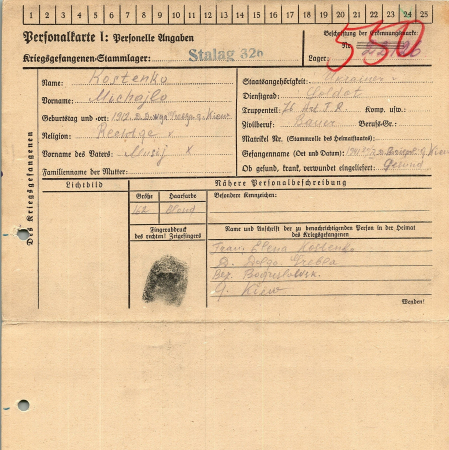 1 2 3 4 5 6 7 8 9 10 11 12 13 14 15 16 17 18 19 20 21 22 23 24 25
Personalkarte I: Personelle Angaben
Kriegsgefangenen-Stammlager: Stalag 326
Beschriftung der Erkennungsmarke
Nr.
Lager:
550
Des Kriegsgefangenen
Name: Kostenko
Vorname: Michajlo
Geburtstag und -ort:
Religion:
Vorname des Vaters: x
Familienname der Mutter:
Staatsangehörigkeit: Ukrainer
Dienstgrad: Soldat
Truppenteil: Komp. usw.:
Zivilberuf: Bauer Berufs-Gr.:
Matrikel Nr. (Stammrolle des Heimatstaates):
Gefangennahme (Ort und Datum):
Ob gesund, krank, verwundet eingeliefert: Gesund
Lichtbild
Nähere Personalbeschreibung
Größe Haarfarbe Besondere Kennzeichen:
162 blond
Fingerabdruck
des rechten! Zeigefingers
Name und Anschrift der zu benachrichtigenden Person in der Heimat
des Kriegsgefangenen
Frau. Elena Kostenko
D. Dolga Grebla
Bez. Boguslawsk.
G. Kiew
Wenden!